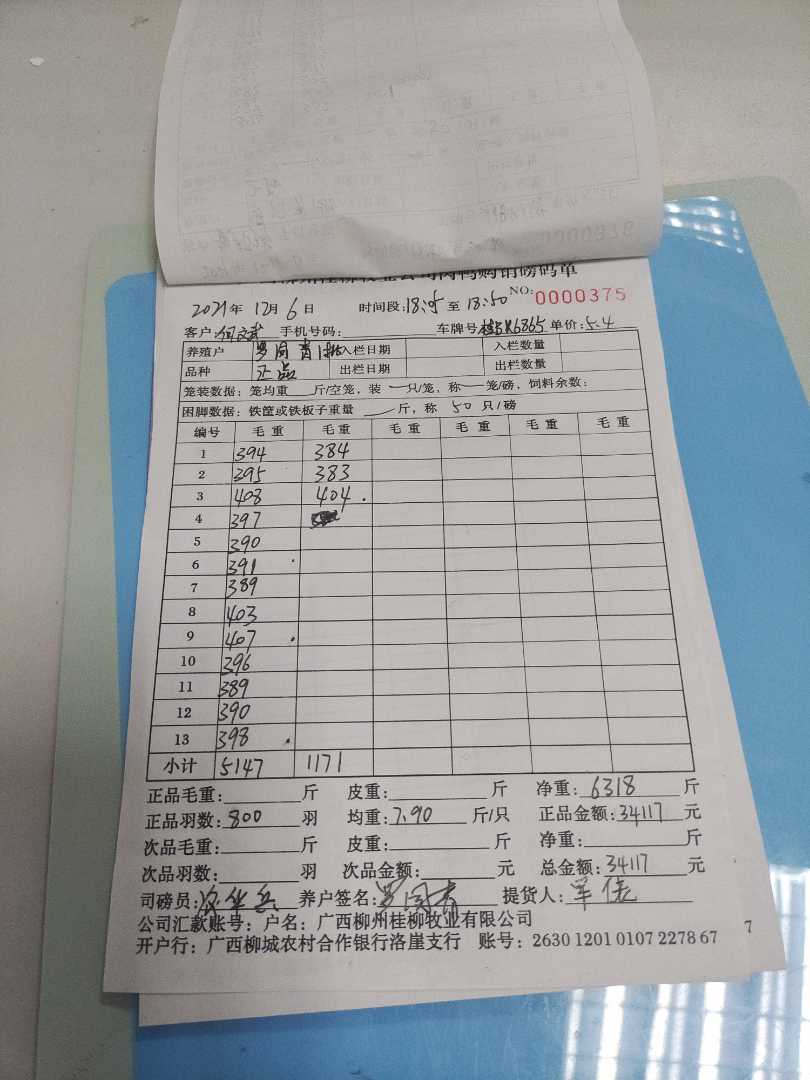 柳州桂柳牧业公司肉鸭购销磅码单
2021年 12月 6日 时间段:18:05至 18:50 NO: 0000375
客户: 何文武 手机号码: 车牌号 6865 单价: 5.4
养殖户 罗周青 入栏日期 入栏数量
品种 正品 出栏日期 出栏数量
笼装数据: 笼均重 斤/空笼, 装 一 只/笼, 称 一 笼/磅, 饲料余数:
困脚数据: 铁筐或铁板子重量 一 斤, 称 50 只/磅
编号 毛重 毛重 毛重 毛重 毛重 毛重
1 394 384
2 395 383
3 408 404.
4 397
5 390
6 391
7 389
8 403
9 407
10 396
11 389
12 390
13 398
小计 5147 1171
正品毛重: 斤 皮重: 斤 净重: 6318 斤
正品羽数: 800 羽 均重: 7.90 斤/只 正品金额: 34117 元
次品毛重: 斤 皮重: 斤 净重: 斤
次品羽数: 羽 次品金额: 元 总金额: 34117 元
司磅员: 养户签名: 罗周青 提货人: 覃
公司汇款账号: 户名: 广西柳州桂柳牧业有限公司
开户行: 广西柳城农村合作银行洛崖支行 账号: 2630 1201 0107 2278 67 7